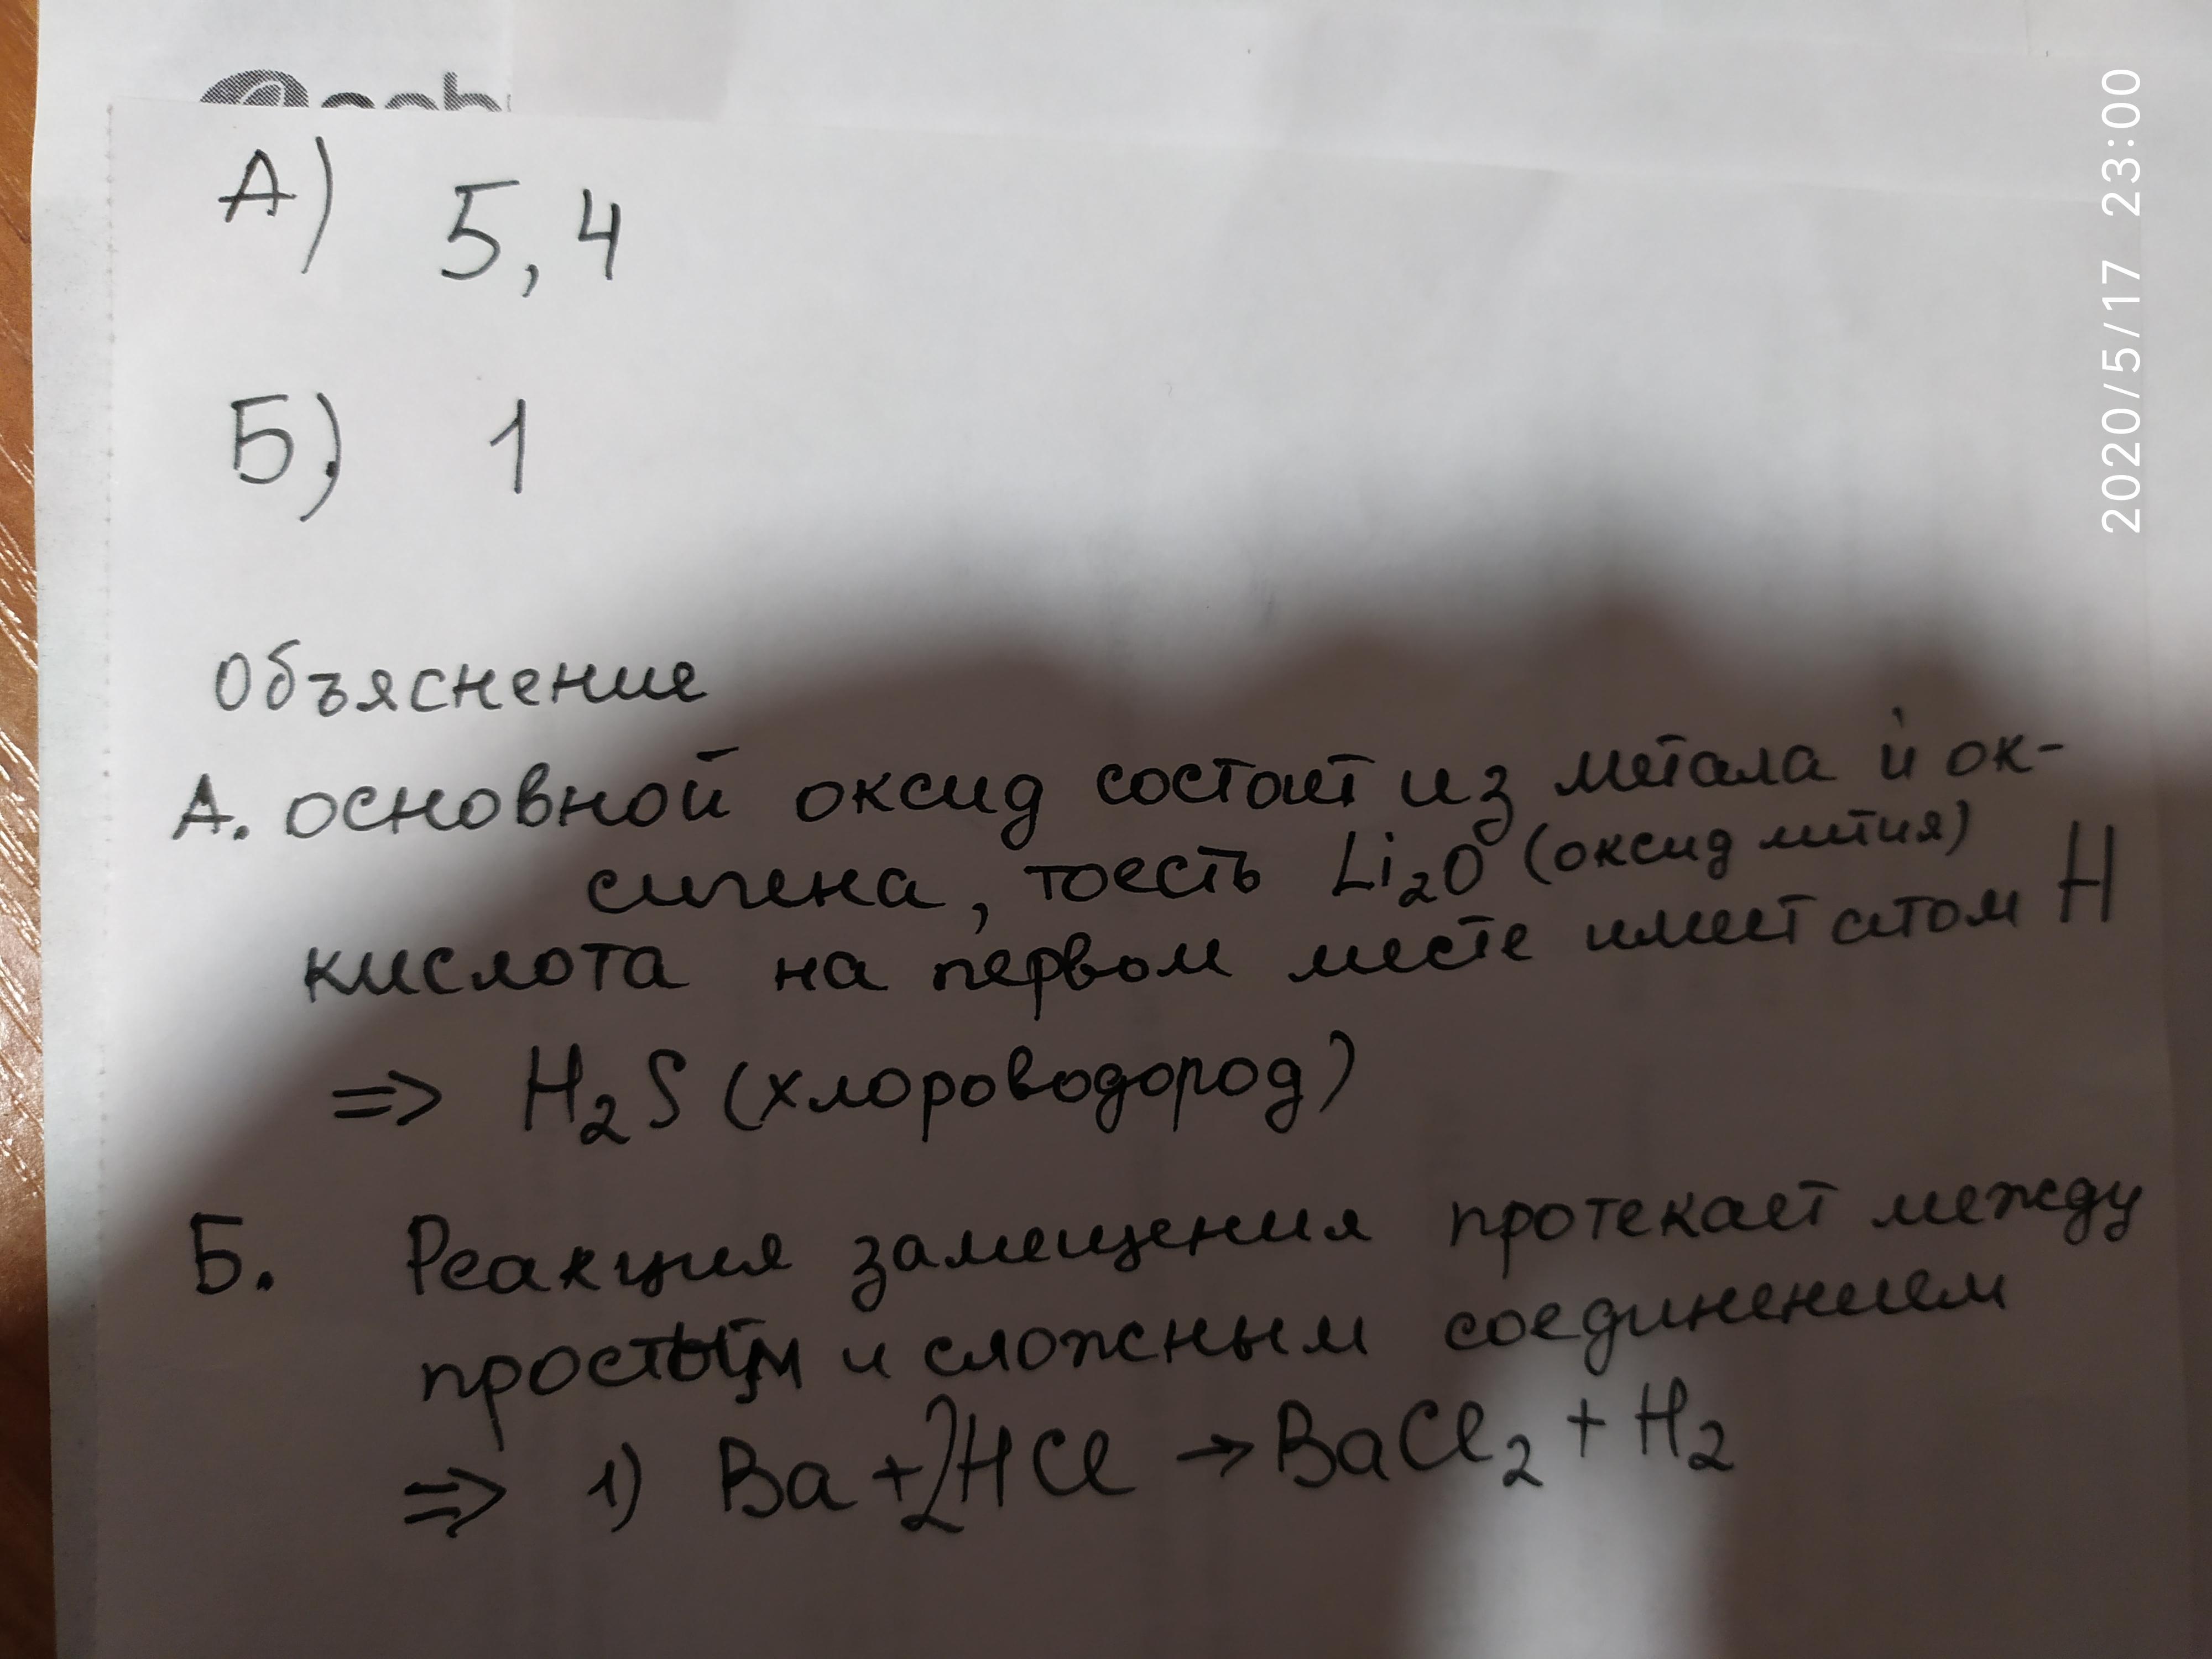 А) 5,4
Б) 1
Объяснение
А. основной оксид состоит из метала и ок-
сигена, тоесть Li₂O (оксид лития)
кислота на первом месте имеет атом H
=> H₂S (хлороводород)
Б. Реакция замещения протекает между
простым и сложным соединением
=> 1) Ba + 2HCl → BaCl₂ + H₂
2020/5/17 23:00